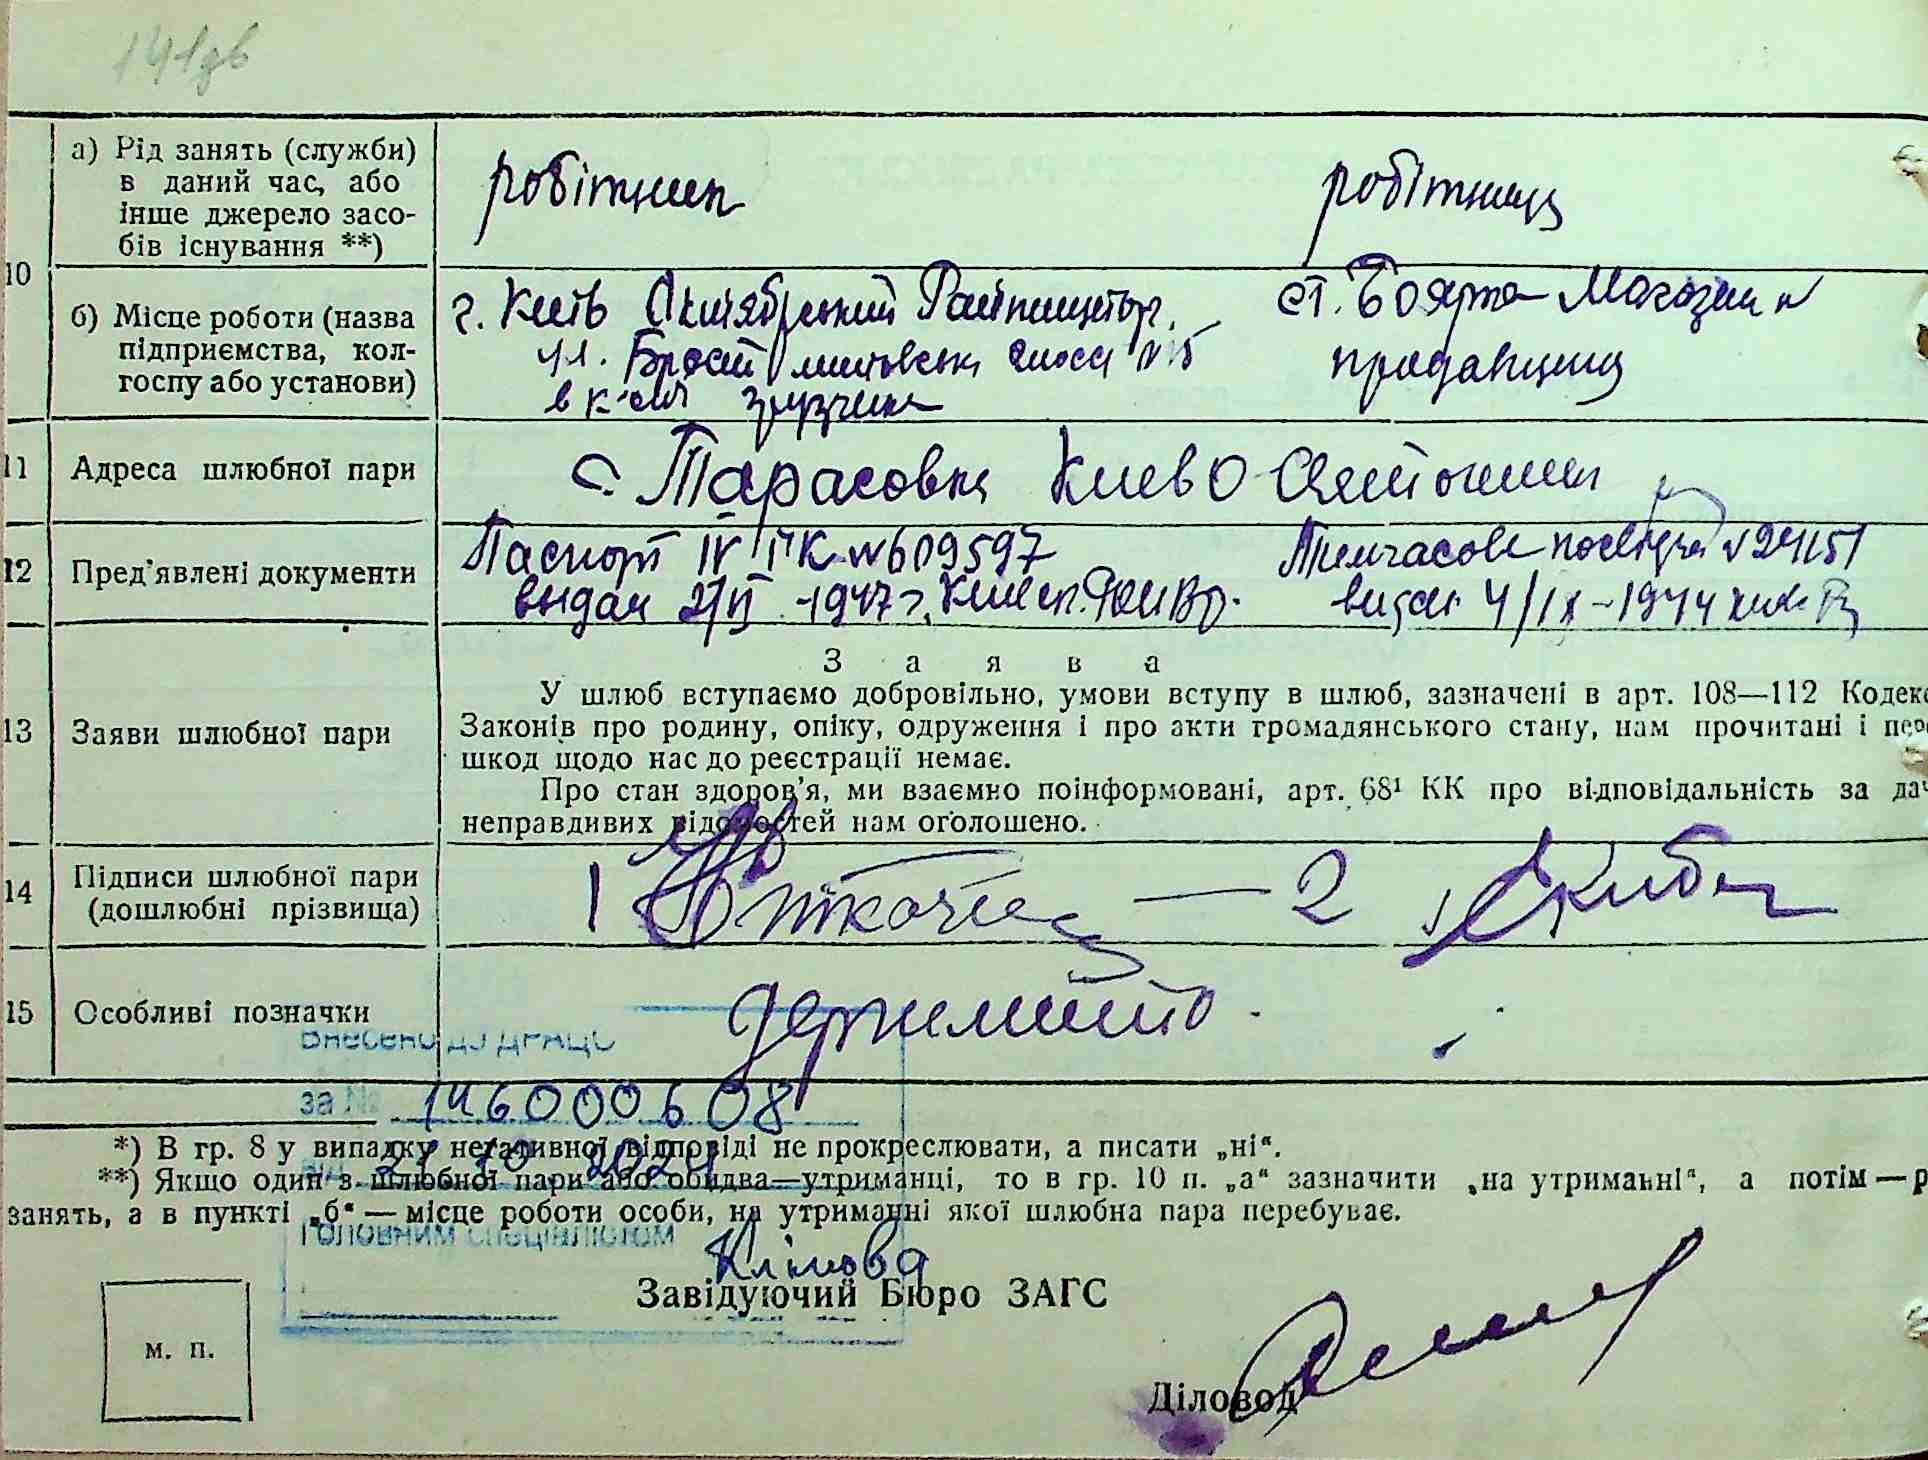 141зв
а) Рід занять (служби)
в даний час, або
інше джерело засо-
бів існування **)
робітник
робітниця
10
б) Місце роботи (назва
підприємства, кол-
госпу або установи)
г. Київ Октябрський Райпищеторг.
ул. Брест литовське шоссе №5
в к-сті грузчика
ст. Боярка Магазин
продавщиця
11
Адреса шлюбної пари
с. Тарасовка Киево-Святошин
12
Пред'явлені документи
Паспорт IV ПК №609597
выдан 1947 г.
Тимчасове посвідчен №24151
видан 4/IX-1944
13
Заяви шлюбної пари
Заява
У шлюб вступаємо добровільно, умови вступу в шлюб, зазначені в арт. 108—112 Кодекс
Законів про родину, опіку, одруження і про акти громадянського стану, нам прочитані і пере
шкод щодо нас до реєстрації немає.
Про стан здоров'я, ми взаємно поінформовані, арт. 68¹ КК про відповідальність за дач
неправдивих відомостей нам оголошено.
14
Підписи шлюбної пари
(дошлюбні прізвища)
1
— 2 Скиба
15
Особливі позначки
Внесено до ДРАЦС
за № 146000608
від 21 10 2024
*) В гр. 8 у випадку негативної відповіді не прокреслювати, а писати „ні“.
**) Якщо один з шлюбної пари або обидва—утриманці, то в гр. 10 п. „а“ зазначити „на утриманні“, а потім — р
занять, а в пункті „б“ — місце роботи особи, на утриманні якої шлюбна пара перебуває.
головним спеціалістом
Клімова
Завідуючий Бюро ЗАГС
м. п.
Діловод